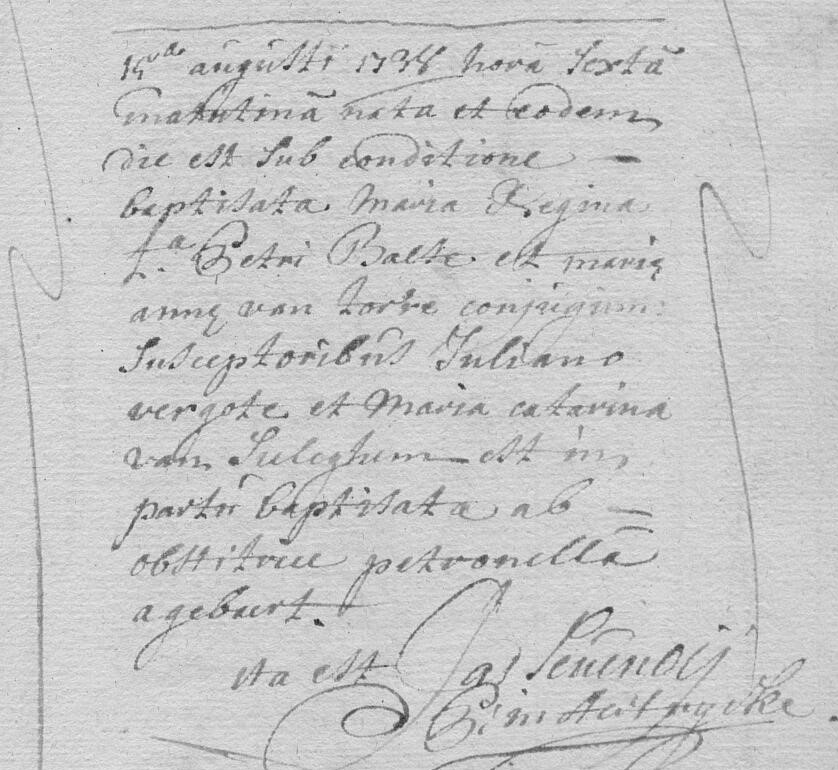 15a augusti 1738 horâ sextâ
matutinâ nata et eodem
die est sub conditione —
baptisata Maria Regina
f.a Petri Baete et marię
annę van torre conjugum:
Susceptoribus Juliano
vergote et Maria catarina
van Suleghem est in
partu baptisata ab =
obstitrice petronellâ
agebaert.
ita est Jas Seuenoij
P: in